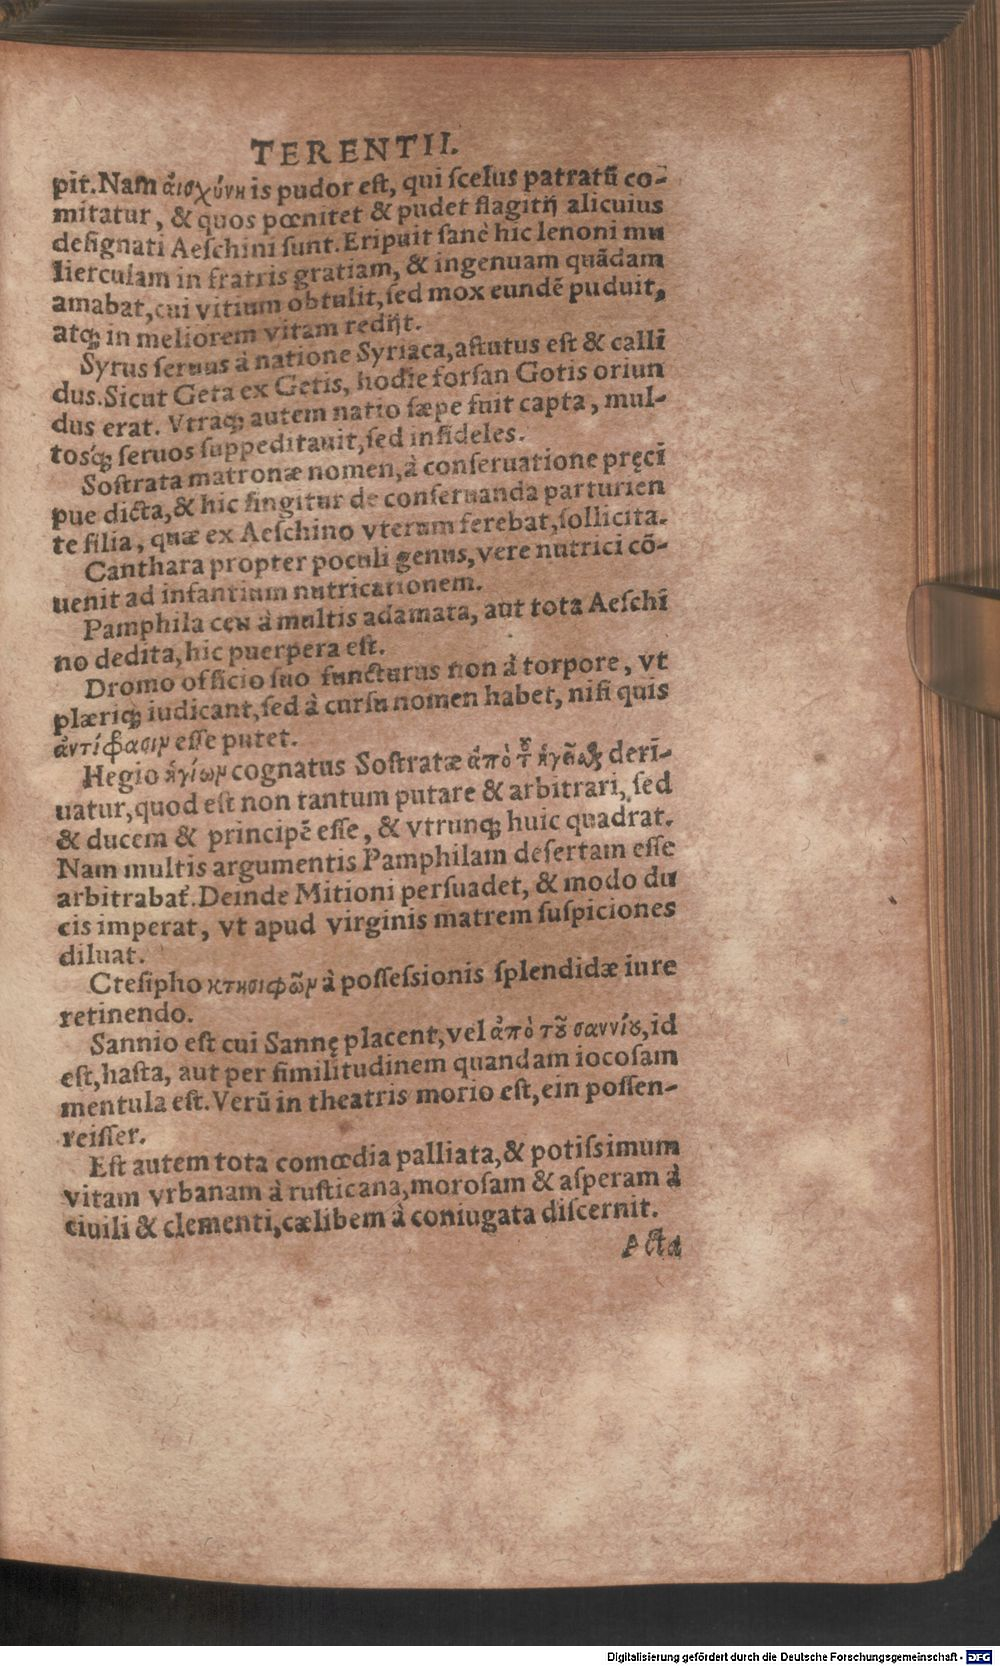 TERENTII.
pit. Nam ἀισχύνη is pudor eſt, qui ſcelus patratũ co-
mitatur, & quos pœnitet & pudet flagitij alicuius
deſignati Aeſchini ſunt. Eripuit ſanè hic lenoni mu
lierculam in fratris gratiam, & ingenuam quãdam
amabat, cui vitium obtulit, ſed mox eundẽ puduit,
atq; in meliorem vitam redijt.
Syrus ſeruus à natione Syriaca, aſtutus eſt & callĩ
dus. Sicut Geta ex Getis, hodie forſan Gotis oriun
dus erat. Vtraq; autem natio ſæpe fuit capta, mul-
tosq́; ſeruos ſuppeditauit, ſed infideles.
Soſtrata matronæ nomen, à conſeruatione pręcĩ
pue dicta, & hic fingitur de conſeruanda parturien
te filia, quæ ex Aeſchino vterum ferebat, ſollicita.
Canthara propter poculi genus, vere nutrici cõ-
uenit ad infantium nutricationem.
Pamphila ceu à multis adamata, aut tota Aeſchĩ
no dedita, hic puerpera eſt.
Dromo officio ſuo functurus non à torpore, vt
plæriq; iudicant, ſed à curſu nomen habet, niſi quis
ἀντίφασιν eſſe putet.
Hegio ἡγίων cognatus Soſtratæ ἀπὸ τ͂ ἡγεῖσθ deri-
uatur, quod eſt non tantum putare & arbitrari, ſed
& ducem & principẽ eſſe, & vtrunq; huic quadrat.
Nam multis argumentis Pamphilam deſertam eſſe
arbitrabat᷑. Deinde Mitioni perſuadet, & modo du
cis imperat, vt apud virginis matrem ſuſpiciones
diluat.
Cteſipho κτησιφῶν à poſſeſsionis ſplendidæ iure
retinendo.
Sannio eſt cui Sannę placent, vel ἀπὸ τοῦ σαννίου, id
eſt, haſta, aut per ſimilitudinem quandam iocoſam
mentula eſt. Verũ in theatris morio eſt, ein poſſen-
reiſſer.
Eſt autem tota comœdia palliata, & potiſsimum
vitam vrbanam à ruſticana, moroſam & aſperam à
ciuili & clementi, cælibem à coniugata diſcernit.
Acta
Digitalisierung gefördert durch die Deutsche Forschungsgemeinschaft - DFG